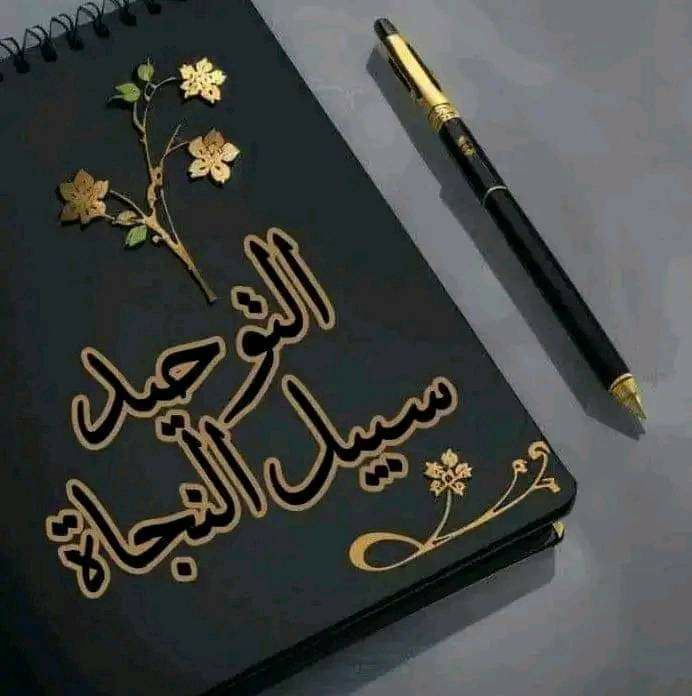 التوحيد
سبيل النجاة